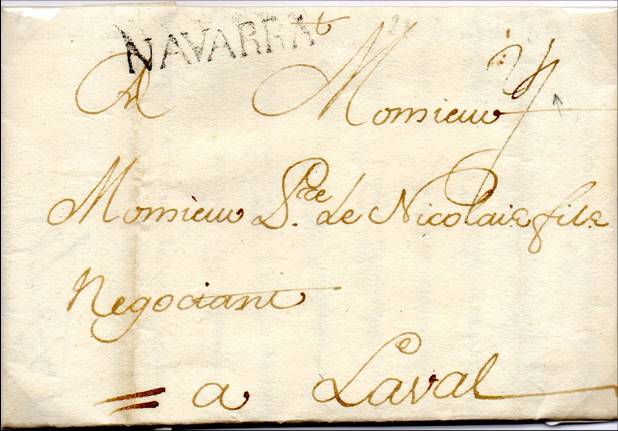 NAVARRA
A Monsieur
Monsieur Le Nicolais fils
Negociant
a Laval